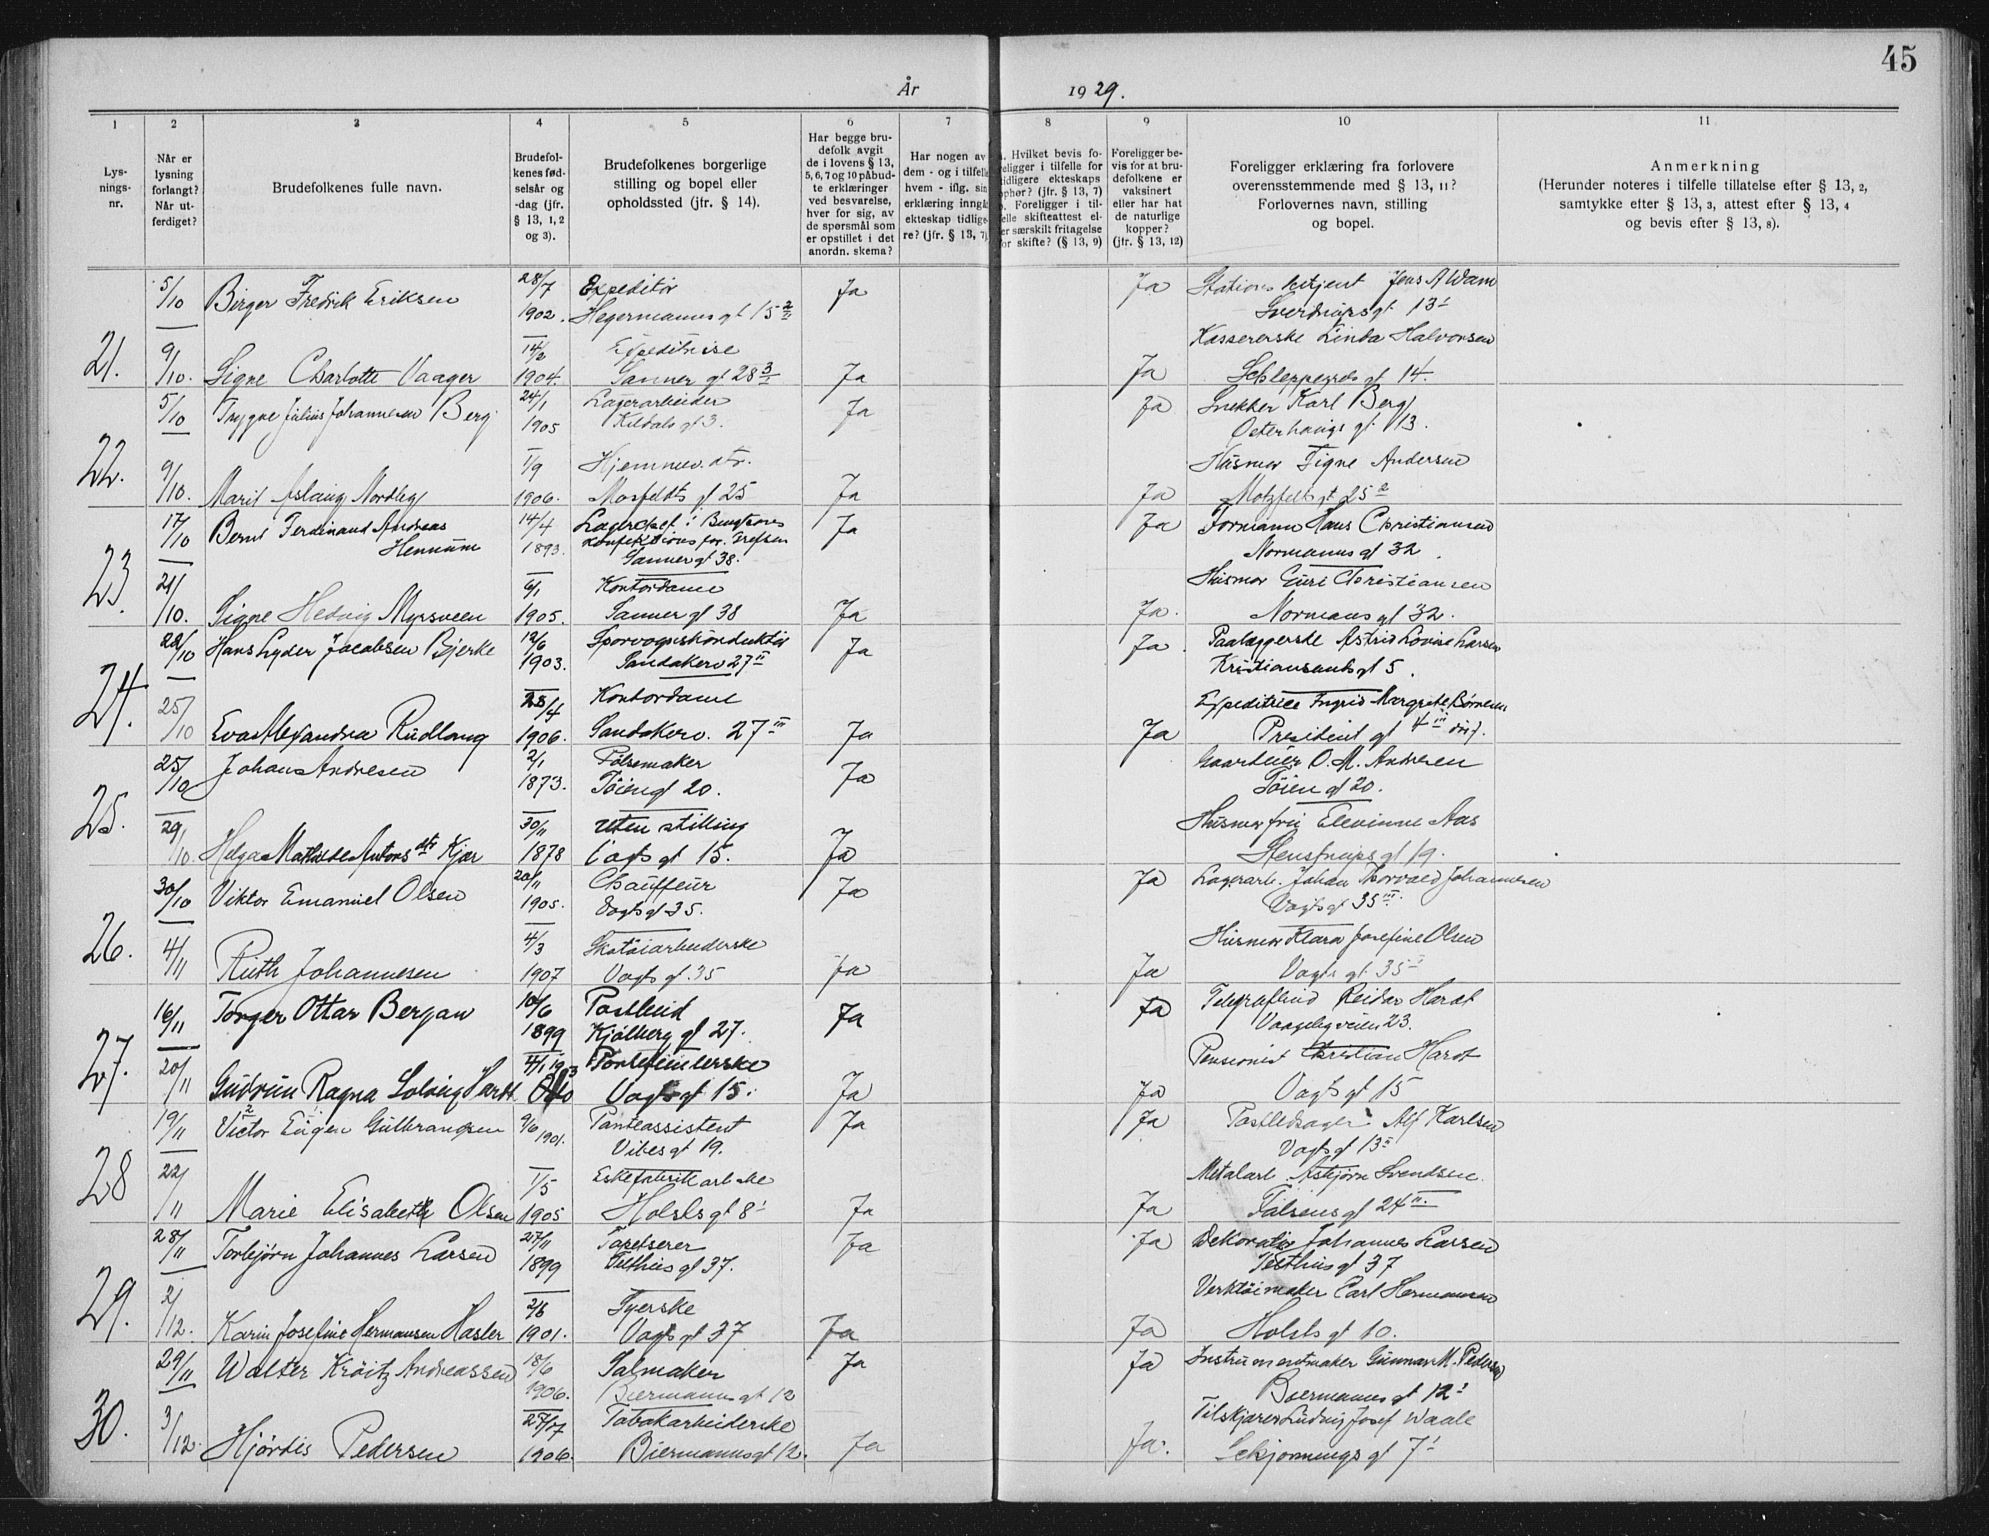 45
År 1929.
1 2 3 4 5 6 7 8 9 10 11
Lys-
nings-
nr.
Når er
lysning
forlangt?
Når ut-
ferdiget?
Brudefolkenes fulle navn.
Brudefol-
kenes fød-
selsår og
-dag (jfr.
§ 13, 1, 2
og 3).
Brudefolkenes borgerlige
stilling og bopel eller
opholdssted (jfr. § 14).
Har begge bru-
defolk avgit
de i lovens § 13,
5, 6, 7 og 10 påbud-
te erklæringer
ved besvarelse,
hver for sig, av
de spørsmål som
er opstillet i det
anordn. skema?
Har nogen av
dem - og i tilfelle
hvem - iflg. sin
erklæring inngå
ekteskap tidlige-
re? (jfr. § 13, 7)
Hvilket bevis fo-
religger i tilfelle for
tidligere ekteskaps
ophør? (jfr. § 13, 7)
Foreligger i til-
felle skifteattest el-
er særskilt fritagelse
for skifte? (§ 13, 9)
Foreligger be-
vis for at bru-
defolkene er
vaksinert
eller har hat
de naturlige
kopper?
(jfr. § 13, 12)
Foreligger erklæring fra forlovere
overensstemmende med § 13, 11?
Forlovernes navn, stilling
og bopel.
Anmerkning
(Herunder noteres i tilfelle tillatelse efter § 13, 2,
samtykke efter § 13, 3, attest efter § 13, 4
og bevis efter § 13, 8).
5/10 Birger Fredrik Eriksen 28/7 Expeditør Ja Ja Jens A Wam
1902. Hegermanns gt 15 Sverdrups gt 13
Kassererske Linda Halvorsen
21. 9/10. Signe Charlotte Vaager 1904. Sanner gt 28 Ja Ja Schleppegrels gt 14.
5/10 Trygve Julius Johannesen Berg 24/1 Lagerarbeider Ja Ja Snekker Karl Berg
1905 Kildals gt 3. gt 13.
22. 9/10. 1/9 Husmor Signe Andersen
Marit Aslaug Nordby 1906. gt 25 Ja Ja Motzfelts gt 25
17/10 Bernt Ferdinand Andreas 14/4 Ja Ja Formann Hans Christiansen
Hennum 1893. Normanns gt 32
Sanner gt 38.
23. 21/10. 6/1 Kontordame Husmor Guri Christiansen
Signe Hedvig Myrsveen 1905. Sanner gt 38 Ja Ja. Normans gt 32.
22/10 Hans Lyder Jacobsen Bjerke 12/6 Sporvognskonduktør Ja Ja. Paalæggerske Astrid Lovise Larsen
1903. Sandakerv 27 II Kristiansands gt 5.
24. 25/10 /4 Kontordame Expeditrice Ingrid Margrete
Eva Alexandra Rudlang 1906. Sandakerv. 27 III Ja Ja President gt 4 III
25/10 Johan Andresen 2/1 Pølsemaker Ja Gaardeier O. M. Andresen
1873. Tøiengt 20. Tøien gt 20.
25. 29/10. 30/11 Uten stilling Elevinne Aas
Helga Mathilde Antons dtr Kjær 1878 Vogts gt 15. Ja Stenstrups gt 19.
30/10 Viktor Emanuel Olsen 20/11 Chauffeur Ja Ja Lagerarb. Johan Thorvald Johannesen
1905. Vogts gt 35. Vogts gt 35 III.
26. 4/11 4/3 Skotøiarbeiderske Husmor Klara Josefine Olsen
Ruth Johannesen 1907 Vogts gt. 35 Ja Ja Vogts gt 35
16/11 Torger Ottar Bergan 10/6 Postbud Ja Ja Telegrafbud Reidar Hardt
1899 Kjølberg gt 27. Vaageliveien 23.
27. 20/11 4/1 Portefeuillerske Pensionist Christian Hardt
Gudrun Ragna Solveig Hardt Oslo Vogts gt 15. Ja Ja Vogts gt 15
19/11 Victor Eugen Gulbrandsen /6 1901. Panteassistent Ja Ja Alf Karlsen
Vibes gt 19. Vogts gt 13 II
28 22/11 1/5 Eskefabrikkarb.ske Metalarb. Asbjørn Svendsen
Marie Elisabeth Olsen 1905 Holsts gt 8 Ja Ja Falsens gt 24 II
28/11 Torbjørn Johannes Larsen 27/11 Tapetserer Ja Ja Dekoratør Johannes Larsen
1899 Telthus gt 37. Telthus gt 37
29. 2/12. 2/6 Syerske Verktøimaker Carl Hermansen
Karin Josefine Hermansen Hasler 1901. Vogts gt 37 Ja Ja Holsts gt 10.
29/11 Walter Krøitz Andreassen 18/6 Salmaker Ja Ja Instrumentmaker Gunnar M. Pedersen
1906. Biermanns gt 12 Biermanns gt 12
30. 3/12. 27/7 Tobakarbeiderske Tilskjærer Ludvig Josef Waale
Hjørdis Pedersen 1906. Biermanns gt 12. Ja Ja. gt 7